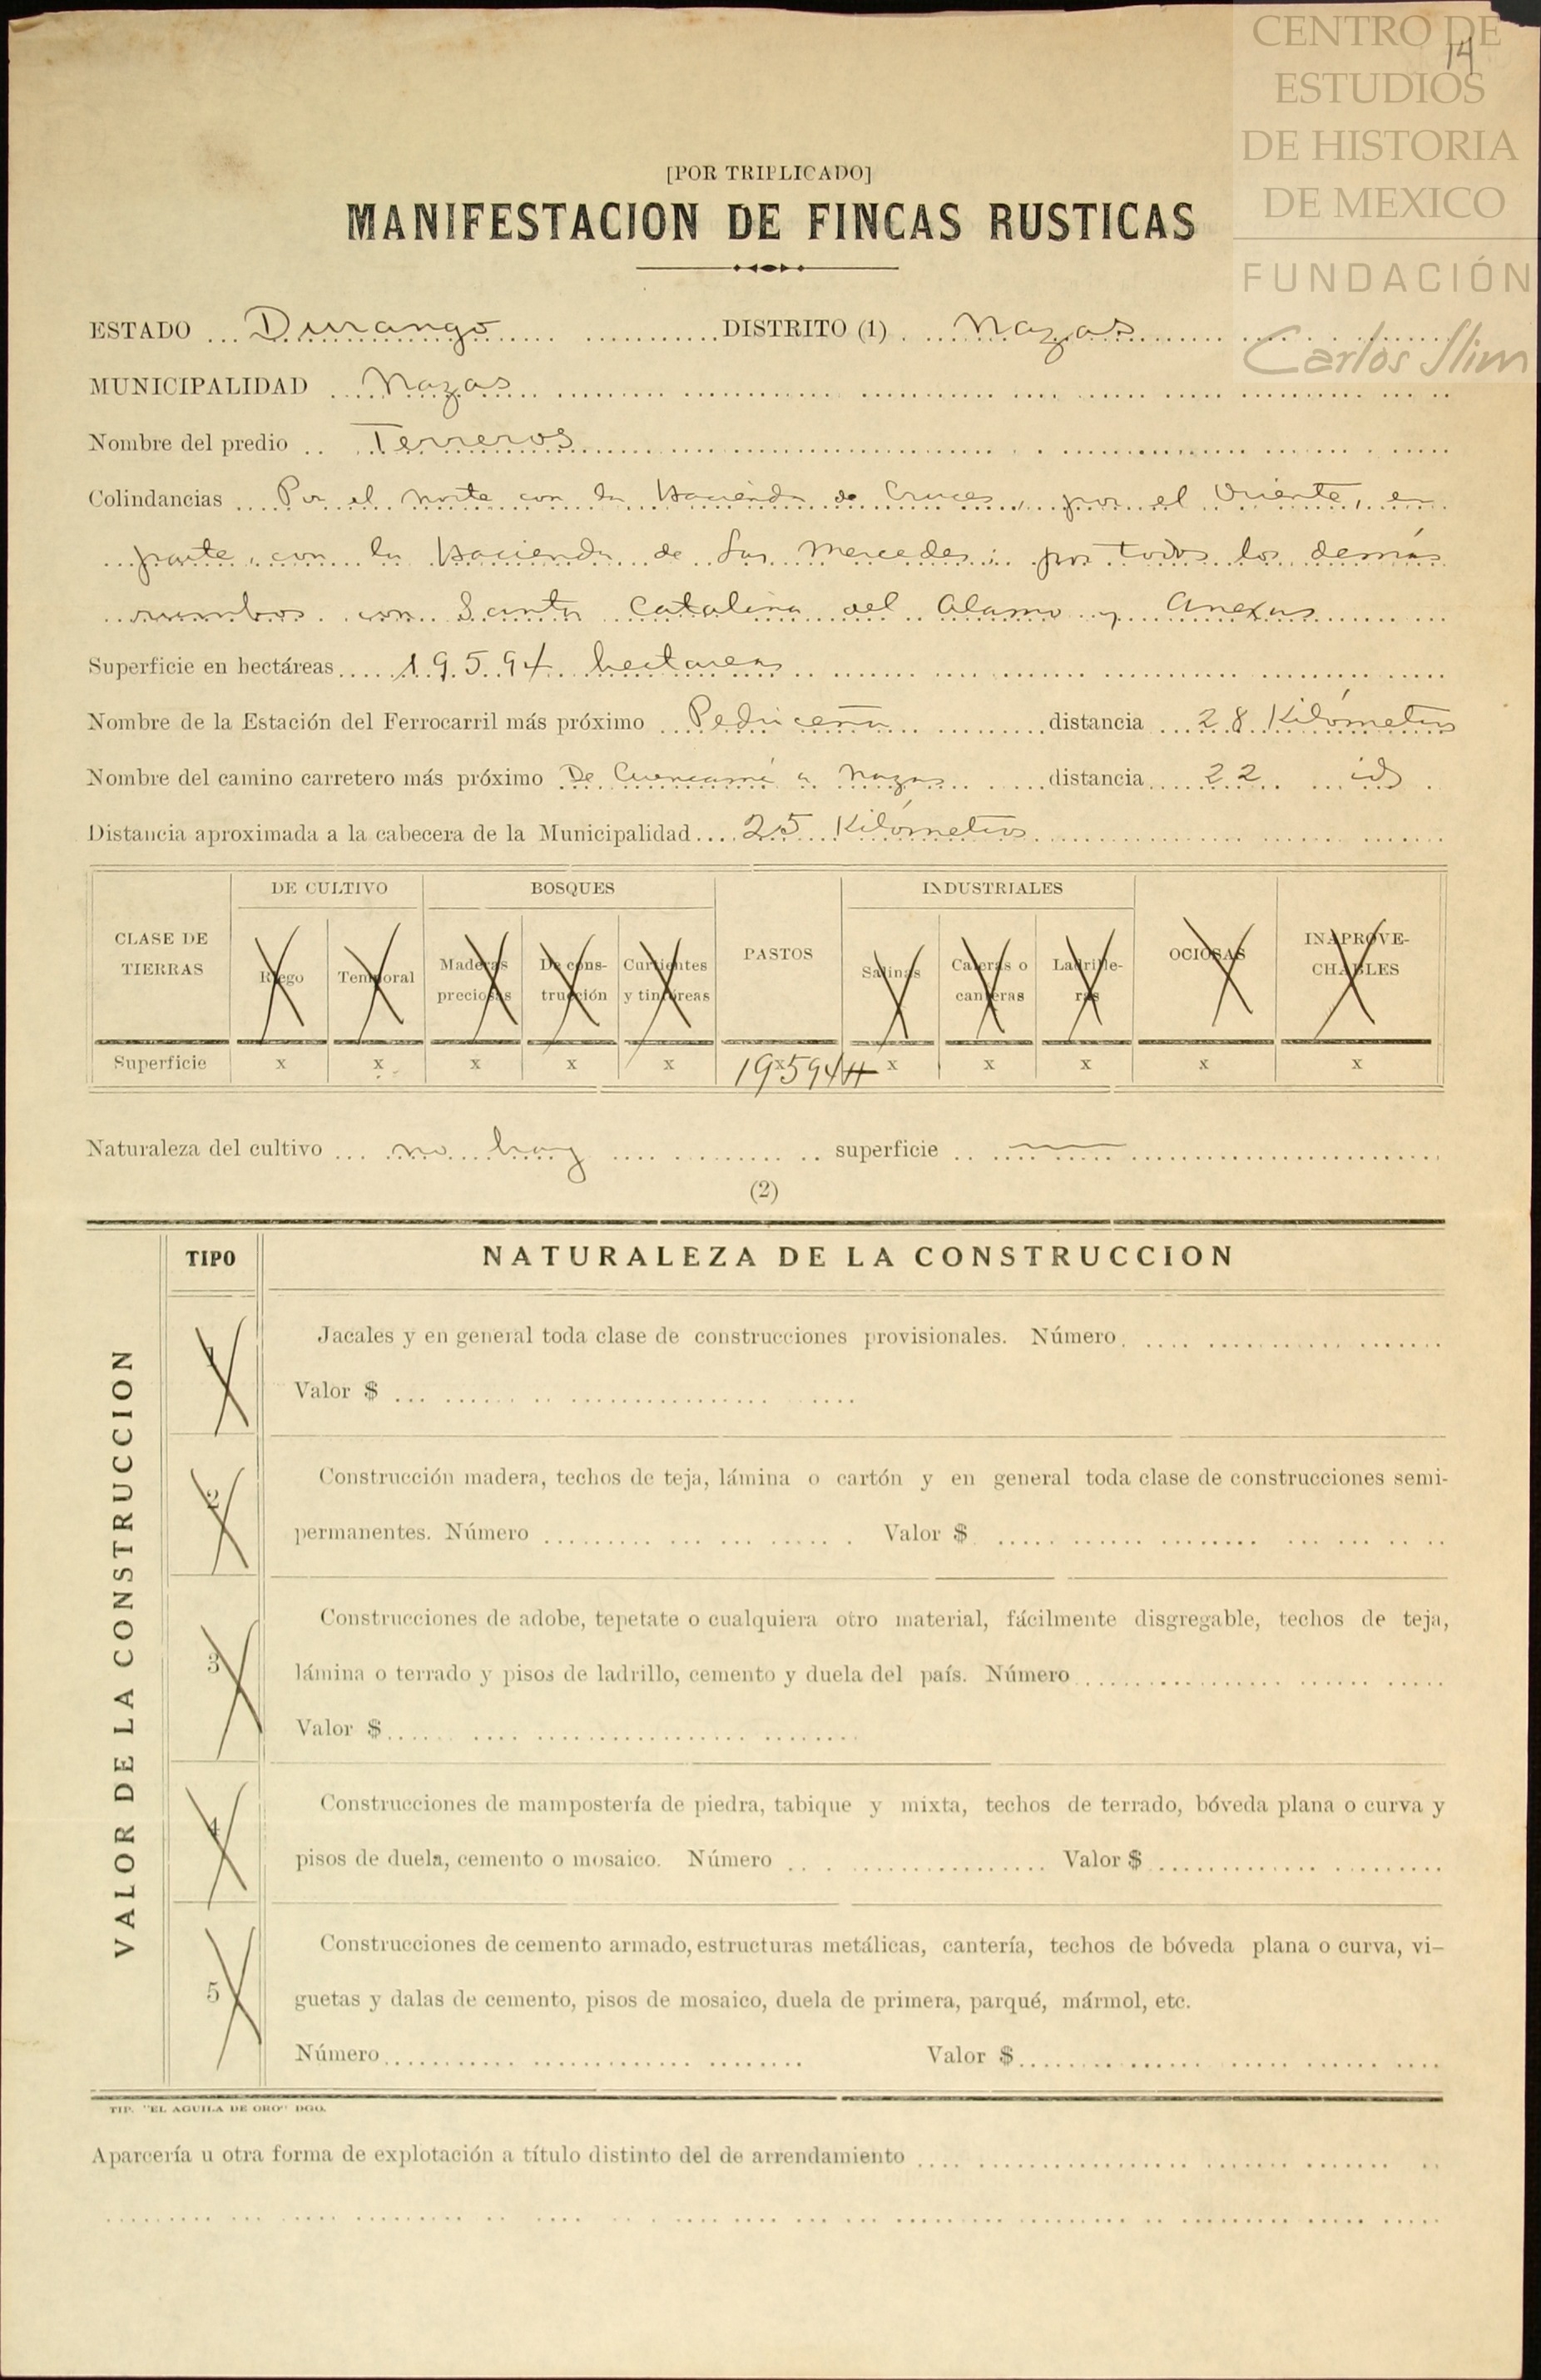 CENTRO DE
ESTUDIOS
DE HISTORIA
DE MEXICO
FUNDACIÓN
Carlos Slim
14
[POR TRIPLICADO]
MANIFESTACION DE FINCAS RUSTICAS
ESTADO Durango DISTRITO (1) Nazas
MUNICIPALIDAD Nazas
Nombre del predio Terreros
Colindancias Por el norte con la Hacienda de Cruces, por el Oriente, en
parte, con la Hacienda de Las Mercedes; por todos los demás
rumbos con Santa Catalina del Alamo y Anexas
Superficie en hectáreas 19594 hectareas
Nombre de la Estación del Ferrocarril más próximo Pedriceña distancia 28 Kilómetros
Nombre del camino carretero más próximo De Cuencamé a Nazas distancia 22 id
Distancia aproximada a la cabecera de la Municipalidad 25 Kilómetros
CLASE DE TIERRAS DE CULTIVO BOSQUES PASTOS INDUSTRIALES OCIOSAS INAPROVE-CHABLES
Riego Temporal Maderas preciosas De cons-trucción Curtientes y tintóreas Salinas Caleras o canteras Ladrille-ras
Superficie x x x x x x 19594 H x x x x x
Naturaleza del cultivo no hay superficie
(2)
VALOR DE LA CONSTRUCCION
TIPO NATURALEZA DE LA CONSTRUCCION
1 Jacales y en general toda clase de construcciones provisionales. Número
Valor $
2 Construcción madera, techos de teja, lámina o cartón y en general toda clase de construcciones semi-
permanentes. Número Valor $
3 Construcciones de adobe, tepetate o cualquiera otro material, fácilmente disgregable, techos de teja,
lámina o terrado y pisos de ladrillo, cemento y duela del país. Número
Valor $
4 Construcciones de mampostería de piedra, tabique y mixta, techos de terrado, bóveda plana o curva y
pisos de duela, cemento o mosaico. Número Valor $
5 Construcciones de cemento armado, estructuras metálicas, cantería, techos de bóveda plana o curva, vi-
guetas y dalas de cemento, pisos de mosaico, duela de primera, parqué, mármol, etc.
Número Valor $
TIP. "EL AGUILA DE ORO" DGO.
Aparcería u otra forma de explotación a título distinto del de arrendamiento